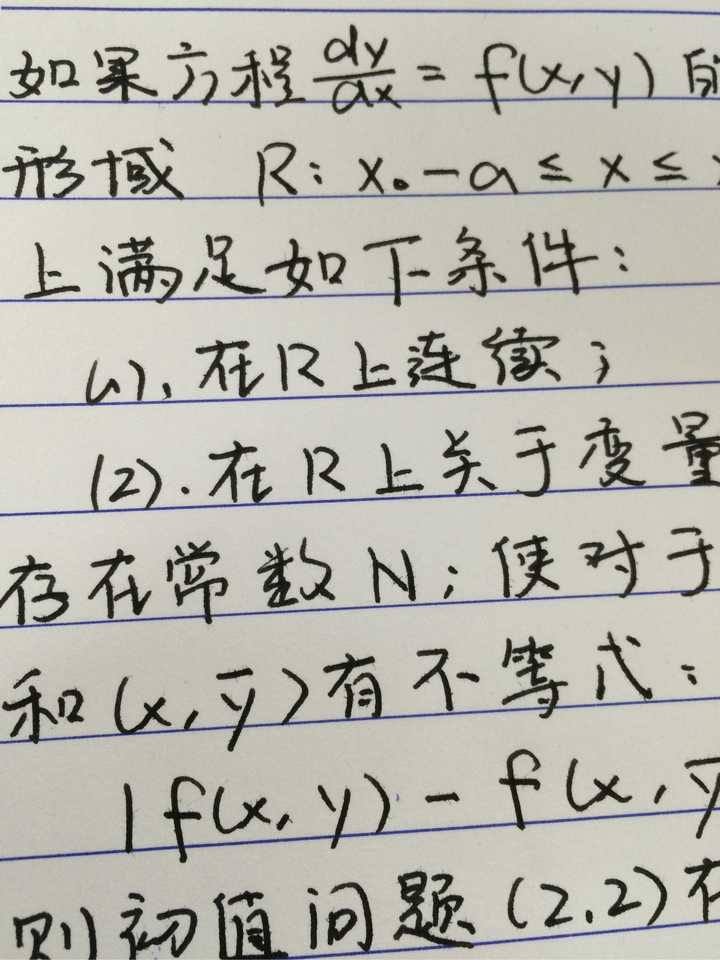 如果方程 dy/dx = f(x,y) 的
形域 R: x₀-a ≤ x ≤
上满足如下条件:
(1). 在R上连续;
(2). 在R上关于变量
存在常数N; 使对于
和(x, ȳ)有不等式:
|f(x, y) - f(x, ȳ
则初值问题(2.2)在